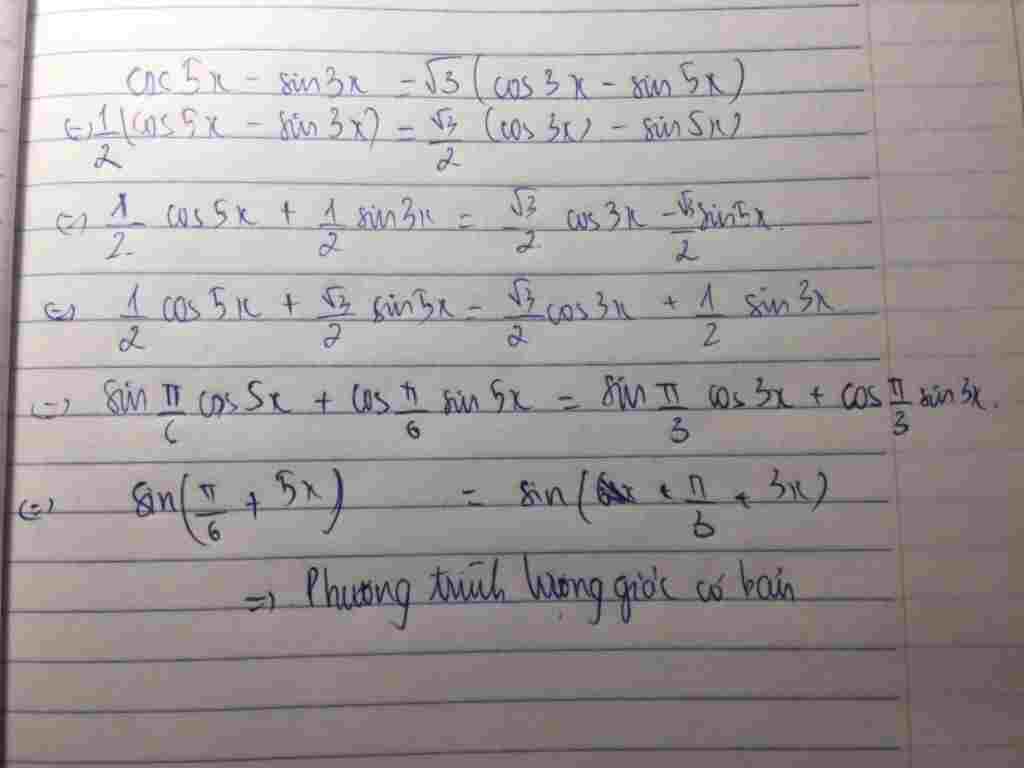 cos 5x - sin 3x = √3 (cos 3x - sin 5x)
⇔ 1/2 (cos 5x - sin 3x) = √3/2 (cos 3x) - sin 5x)
⇔ 1/2 cos 5x + 1/2 sin 3x = √3/2 cos 3x - √3/2 sin 5x.
⇔ 1/2 cos 5x + √3/2 sin 5x = √3/2 cos 3x + 1/2 sin 3x
⇔ sin π/6 cos 5x + cos π/6 sin 5x = sin π/3 cos 3x + cos π/3 sin 3x.
⇔ sin(π/6 + 5x) = sin(π/3 + 3x)
=> Phương trình lượng giác cơ bản